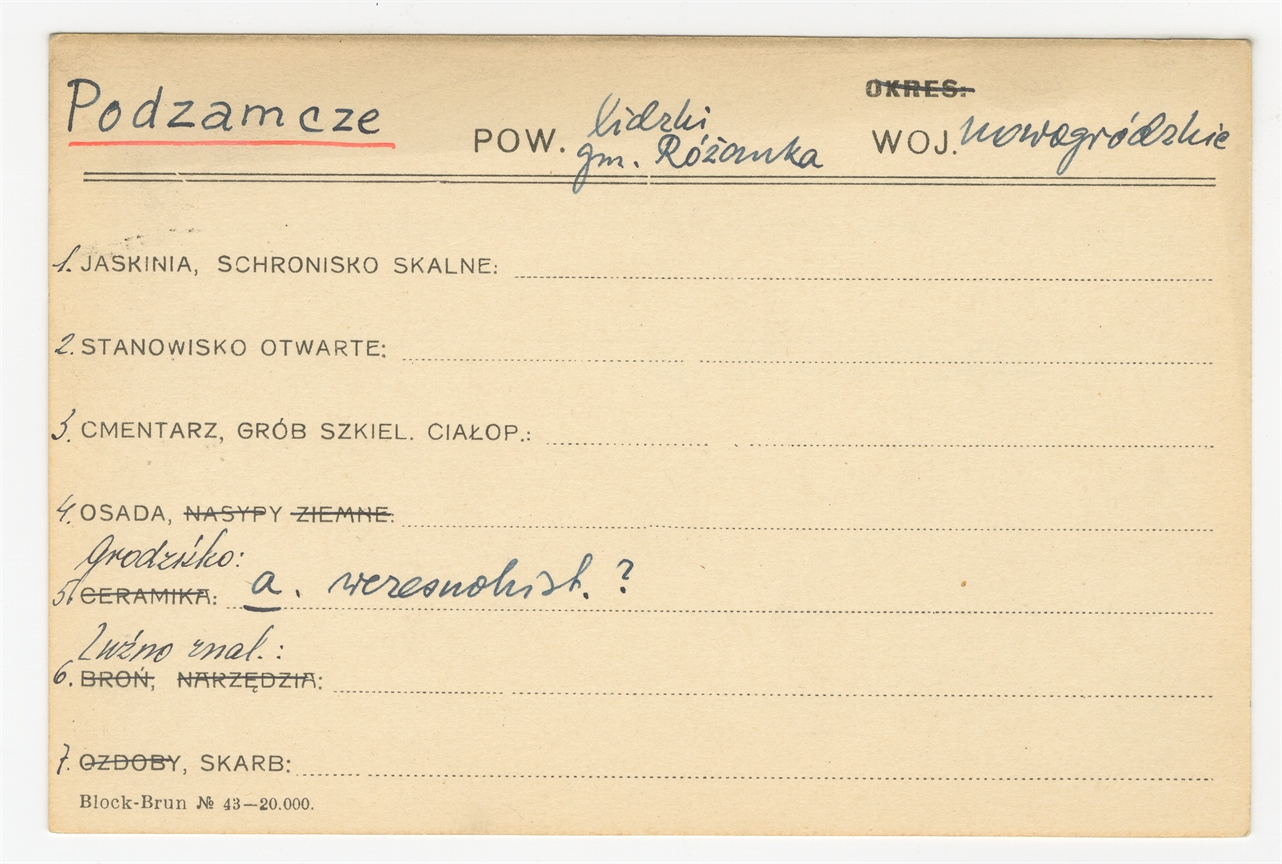 Podzamcze
OKRES:
POW. lidzki
gm. Różanka
WOJ. nowogródzkie
1. JASKINIA, SCHRONISKO SKALNE:
2. STANOWISKO OTWARTE:
3. CMENTARZ, GRÓB SZKIEL. CIAŁOP.:
4. OSADA, NASYPY ZIEMNE:
Grodzisko:
5. CERAMIKA: a. wczesnohist. ?
Luźno znal.:
6. BROŃ, NARZĘDZIA:
7. OZDOBY, SKARB:
Block-Brun № 43—20.000.